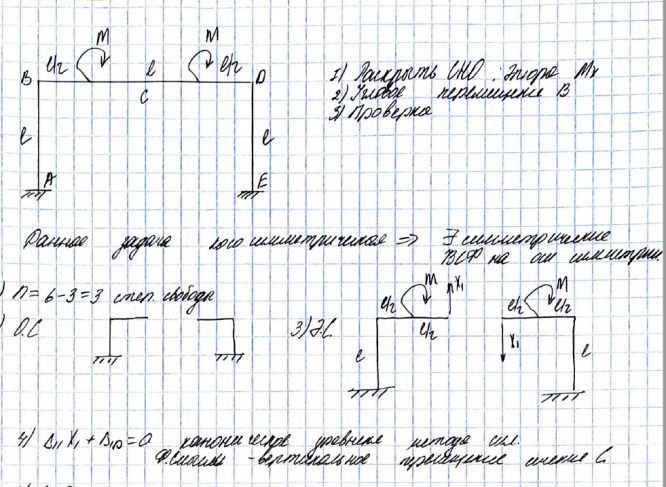 M M
B l/2 l l/2 D
C
l l
A E
1) Раскрыть СНО : Эпюра Mx
2) Угловое перемещение B
3) Проверка
Данная задача кососимметрическая => ∃ симметрические
ВСФ на оси симметрии
) n = 6-3=3 степ. свободы
) О.С 3) Э.С.
l/2 M X₁ l/2 M l/2
l/2 X₁
l l
4) Δ₁₁ X₁ + Δ₁₀ = 0 каноническое уравнение метода сил.
Ф.смысл - вертикальное перемещение сечения C